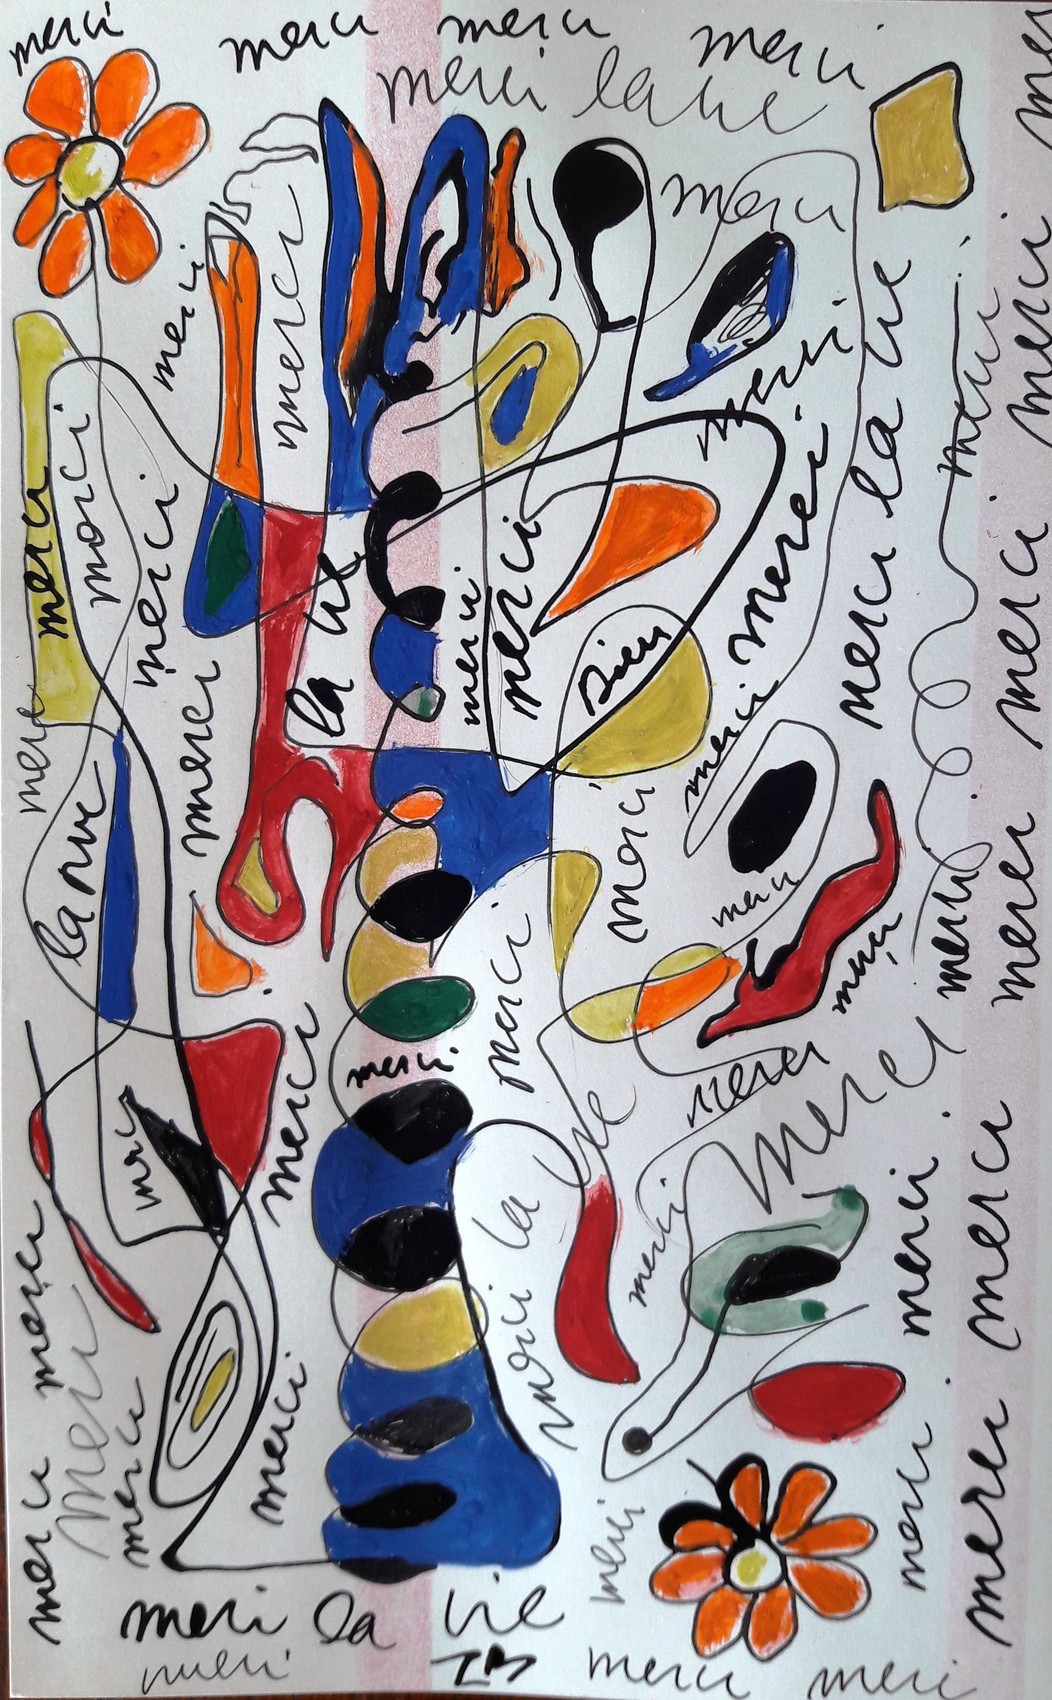 merci
merci
merci
merci
merci la vie
merci
merci
merci
merci
merci
merci
merci
merci
merci
merci la vie
merci
merci
merci
merci
merci
merci
la vie
merci
merci
Dieu
merci
merci
merci
merci
la vie
merci
merci
merci
merci
merci
merci
merci
merci
merci
merci
merci
merci la vie
merci
merci
merci
merci
merci
merci
merci
merci
merci
merci
merci
merci
merci la vie
merci
merci
merci